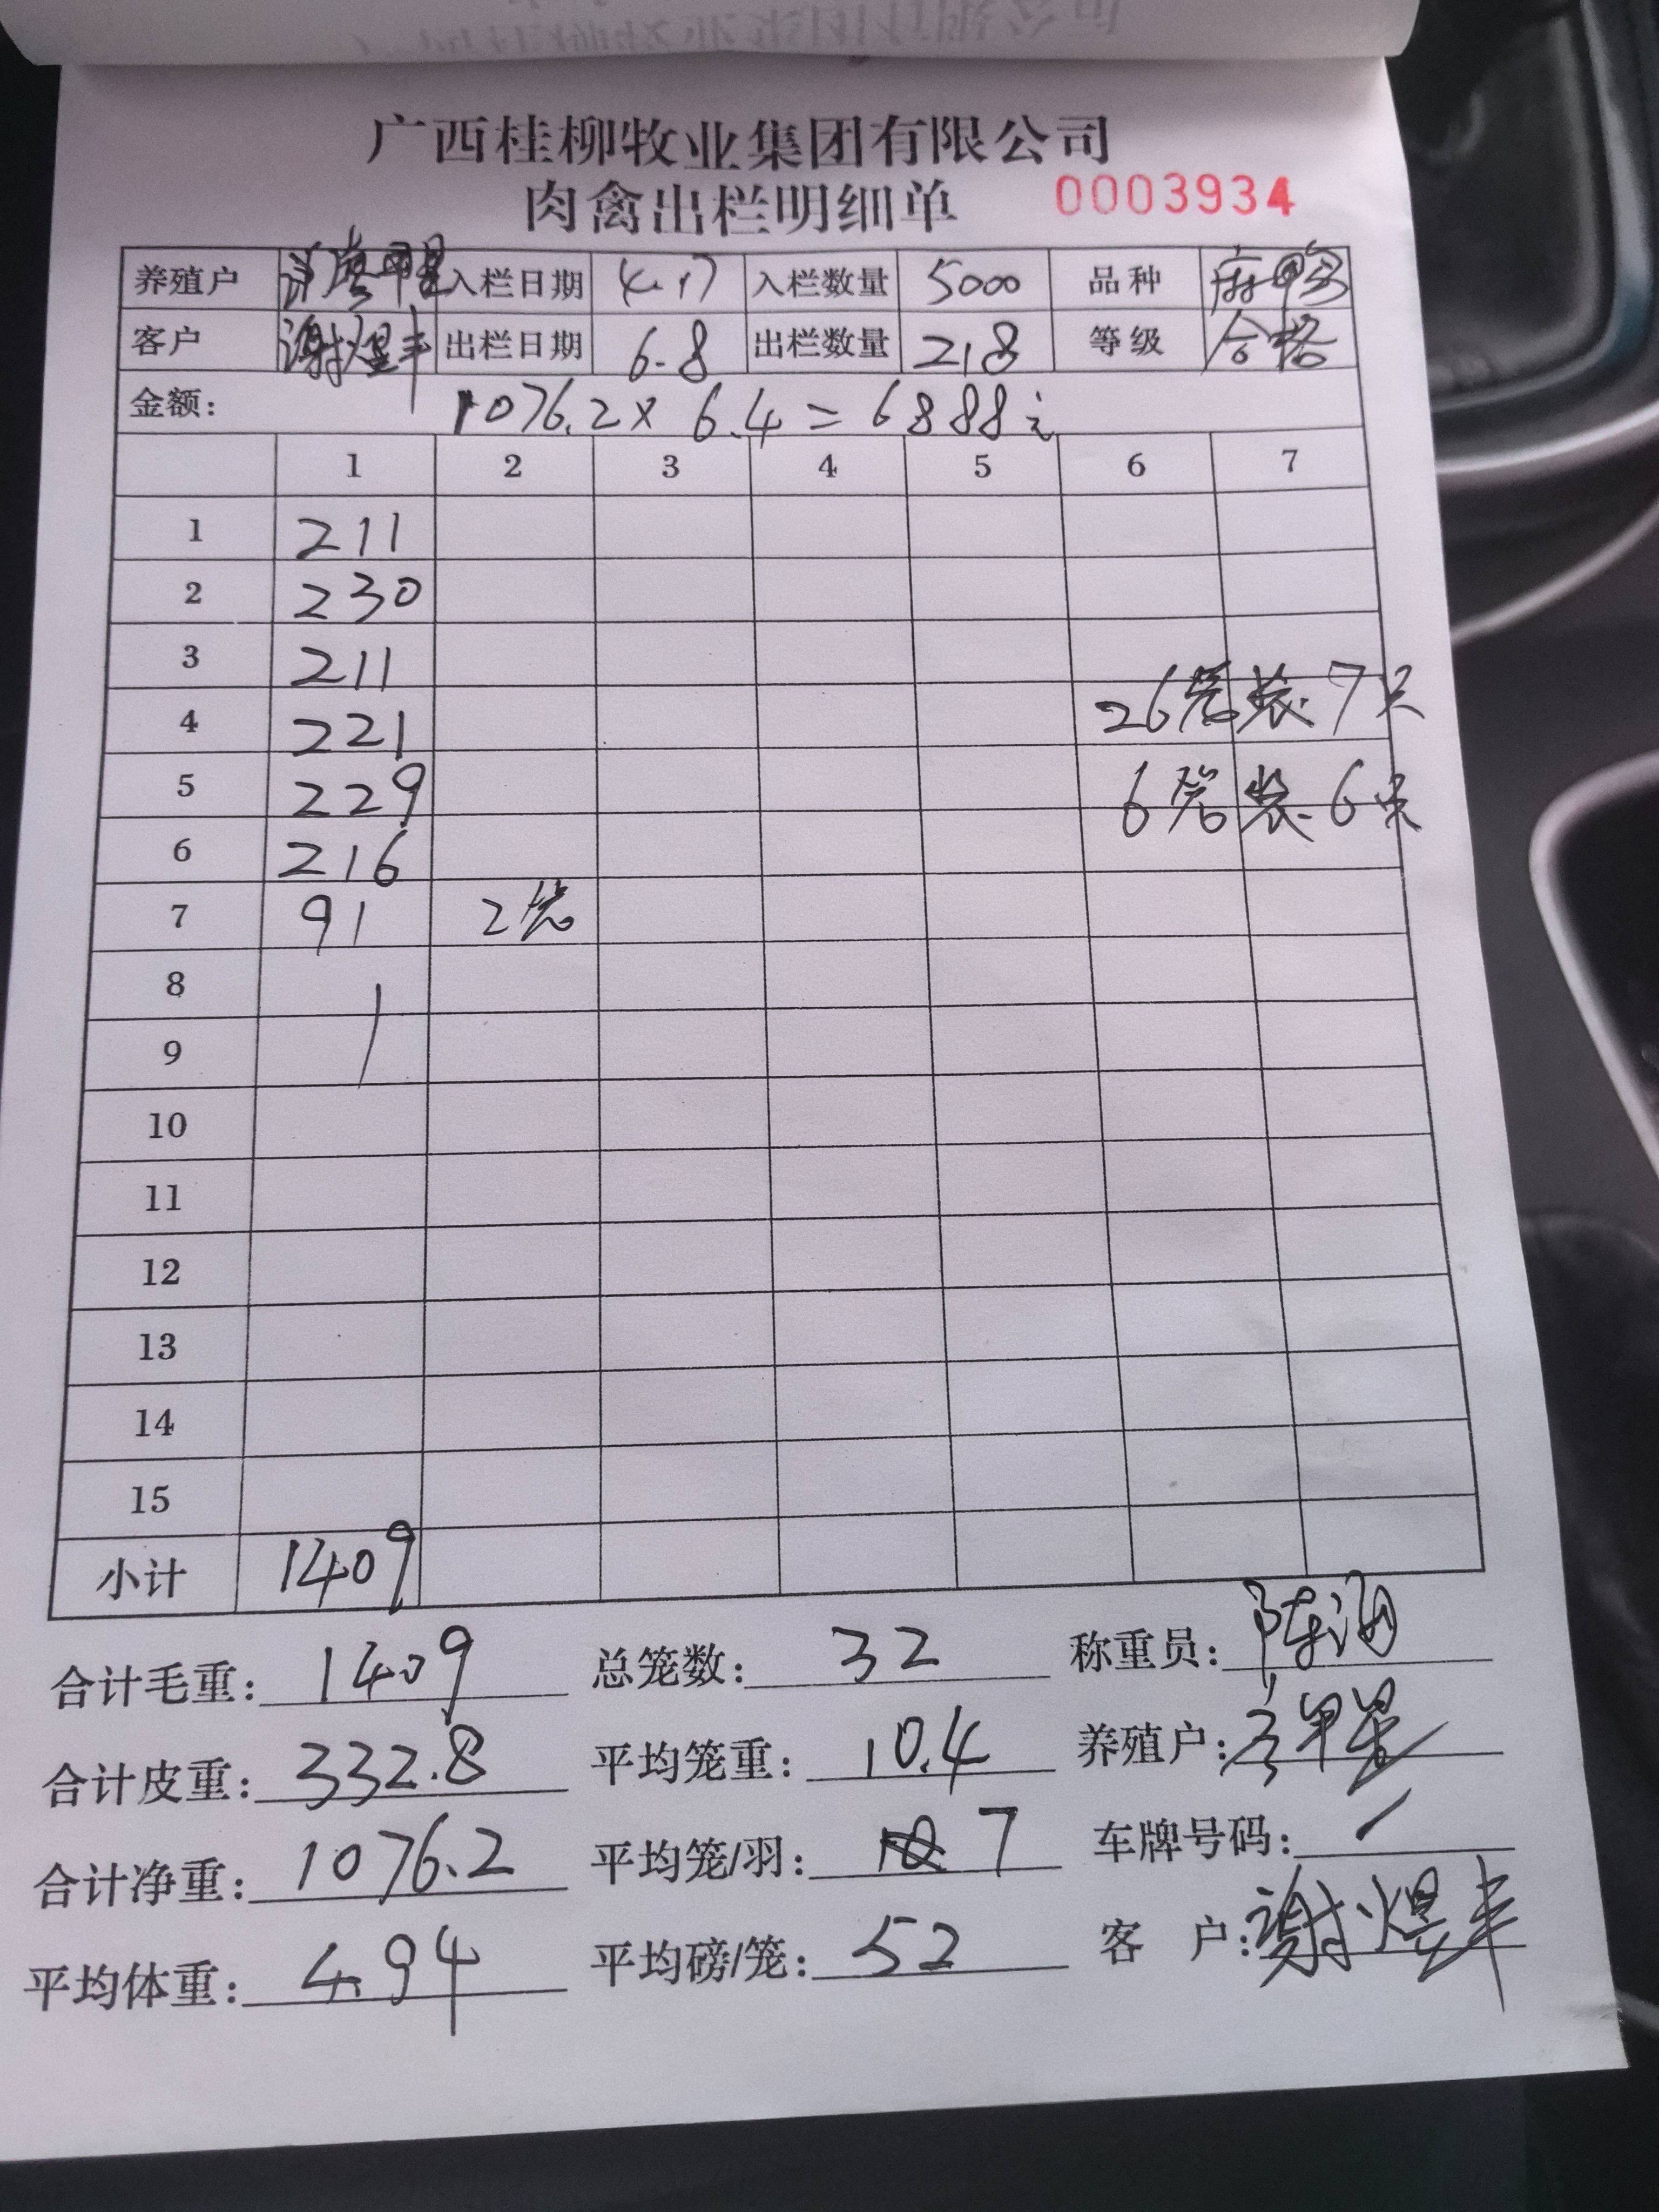 广西桂柳牧业集团有限公司
肉禽出栏明细单 0003934
养殖户 入栏日期 4.17 入栏数量 5000 品种 麻鸭
客户 谢煜丰 出栏日期 6.8 出栏数量 218 等级 合格
金额: 1076.2 x 6.4 = 6888
1 2 3 4 5 6 7
1 211
2 230
3 211
4 221 26笼装.7只
5 229 6笼装.6只
6 216
7 91 2笼
8
9
10
11
12
13
14
15
小计 1409
合计毛重: 1409 总笼数: 32 称重员:
合计皮重: 332.8 平均笼重: 10.4 养殖户:
合计净重: 1076.2 平均笼/羽: 7 车牌号码: /
平均体重: 4.94 平均磅/笼: 52 客 户: 谢煜丰